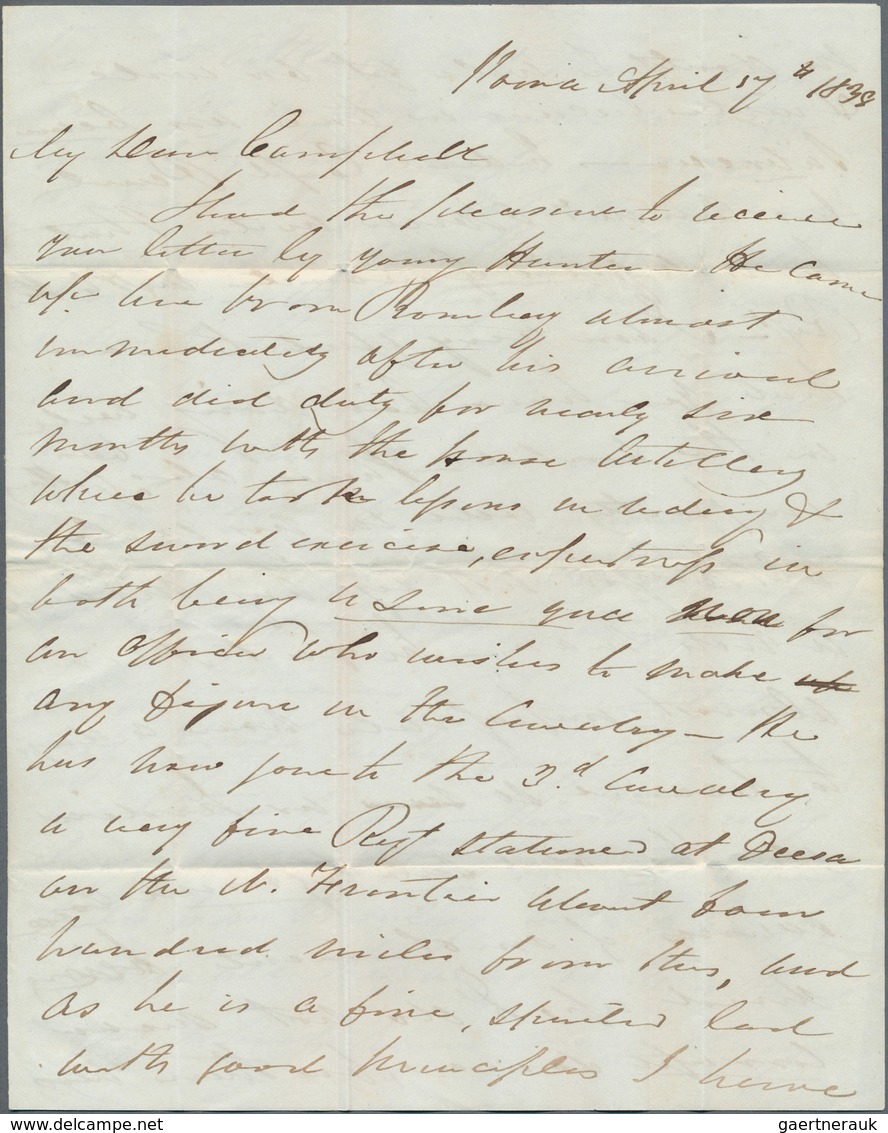 Poona April 17th 1838
My Dear Campbell
I had the pleasure to receive
your letter by young Hunter - He came
up here from Bombay almost
immediately after his arrival
and did duty for nearly six
months with the Horse Artillery
where he took lessons in riding &
the sword exercise, expertness in
both being a sine qua non for
an officer who wishes to make
any figure in the Cavalry - He
has now gone to the 3d Cavalry
a very fine Regt stationed at Deesa
on the N. Frontier about four
hundred miles from this, and
as he is a fine, spirited lad
with good principles I have
DELCAMPE.NET
gaertnerauk